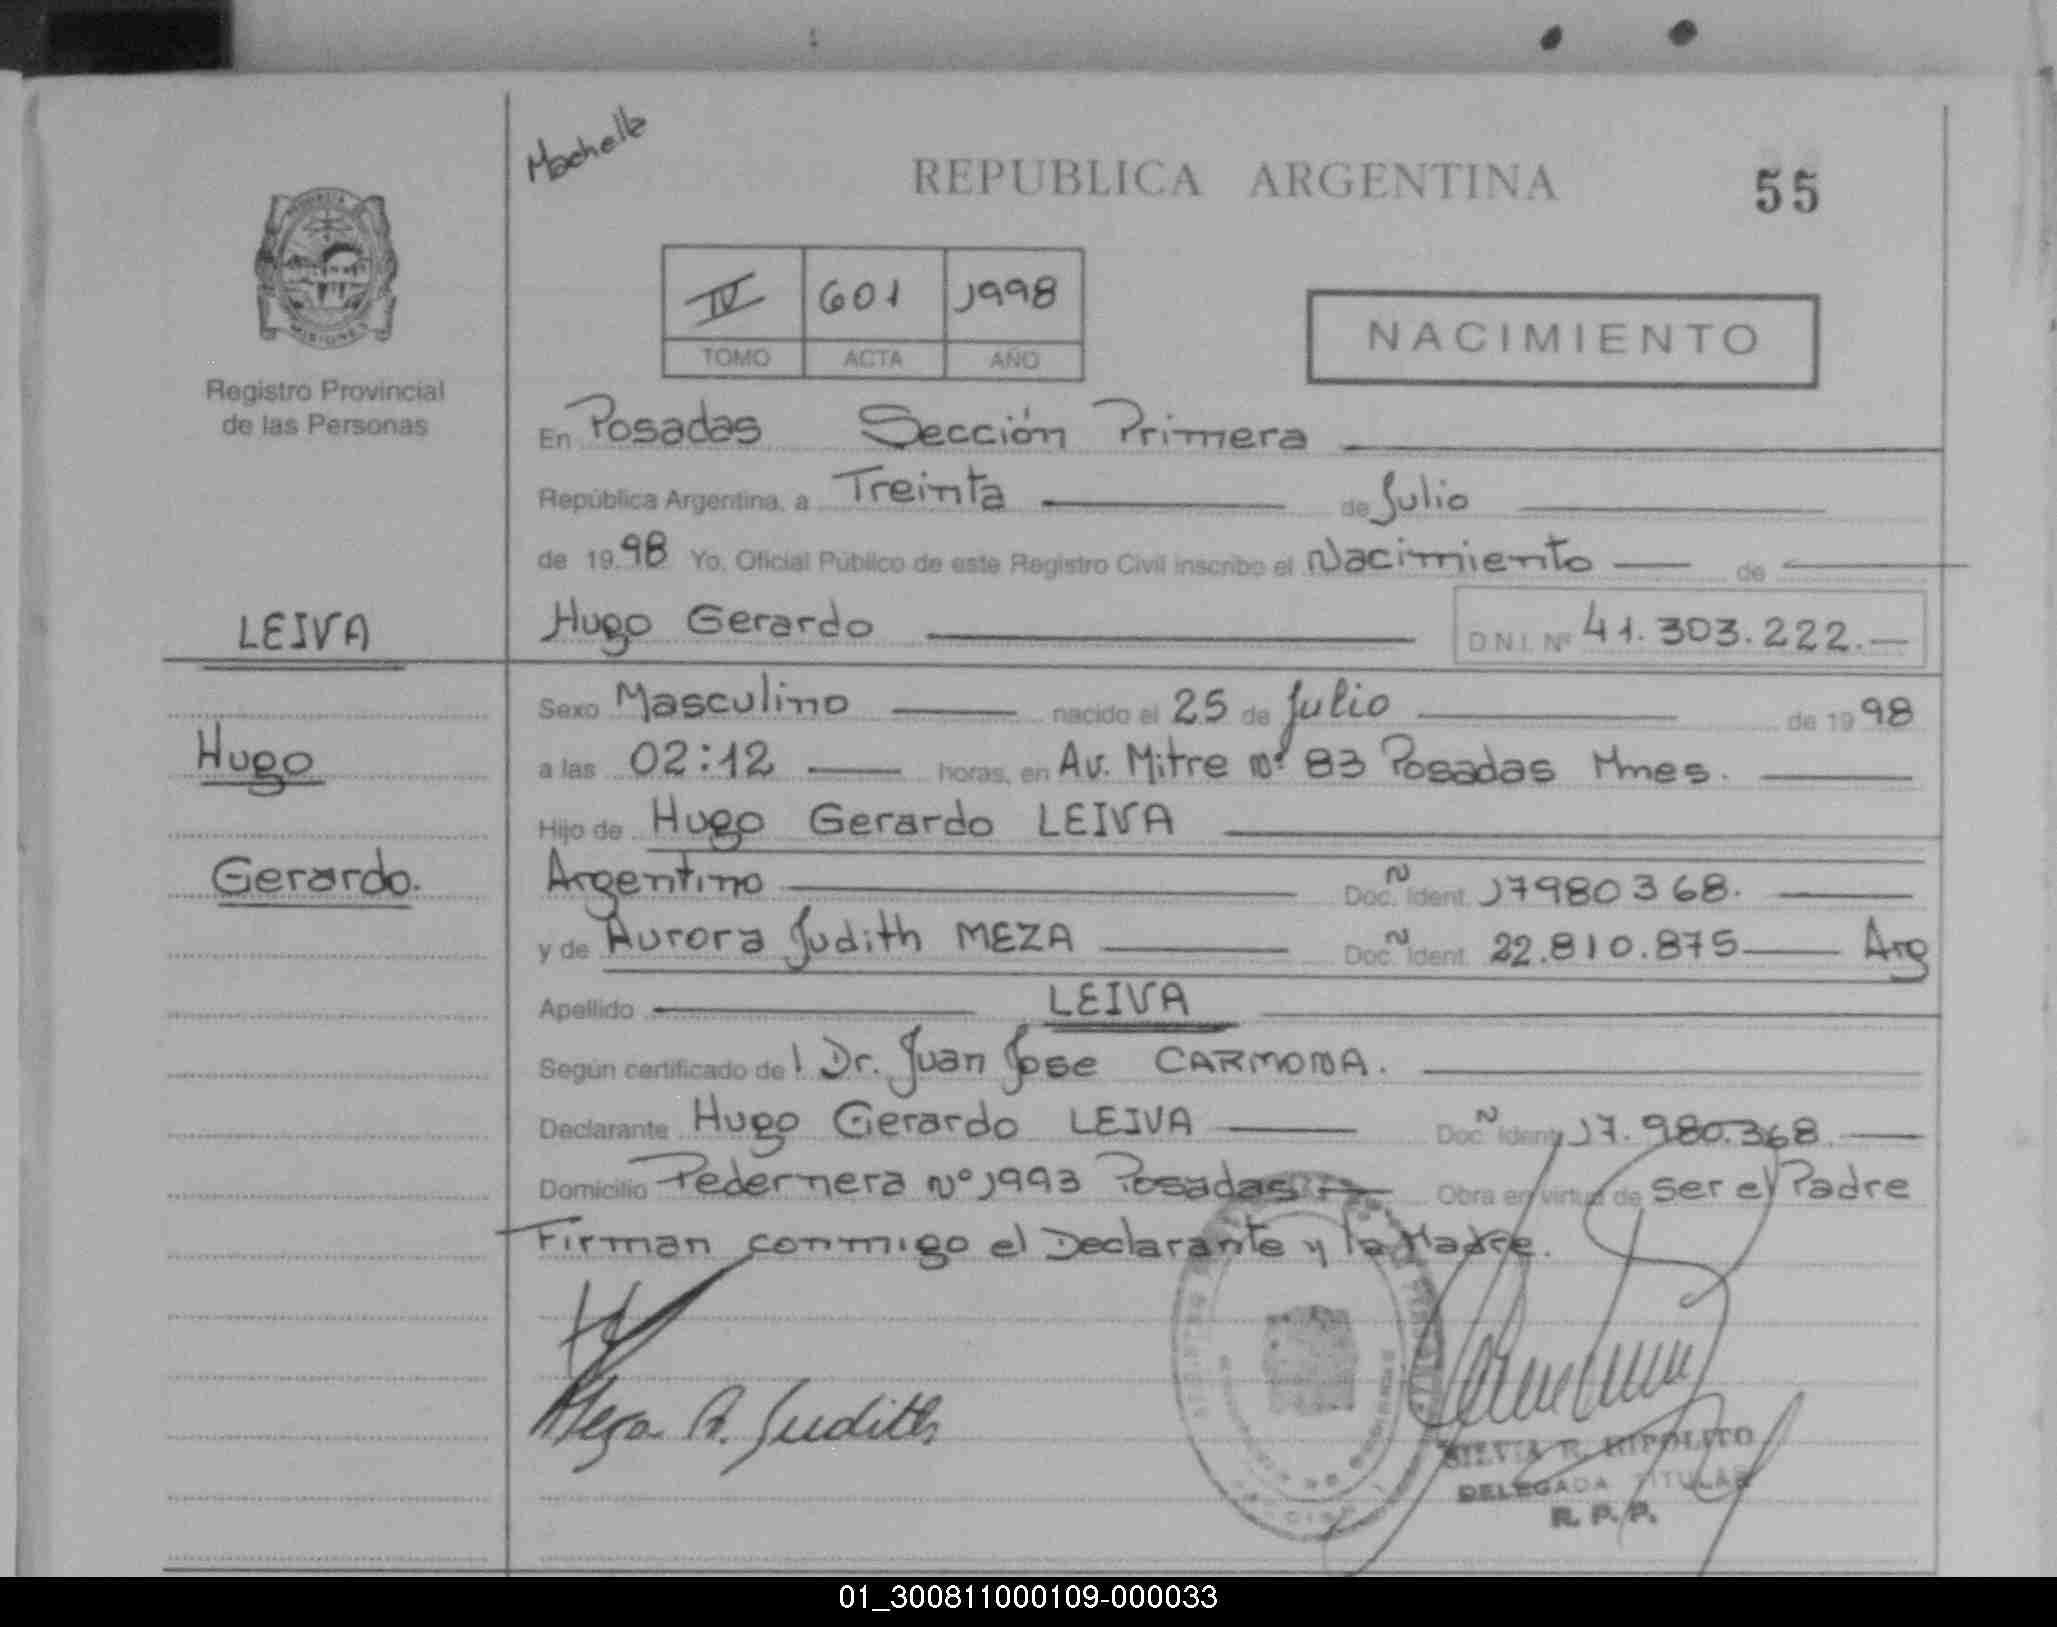 Machella
REPUBLICA ARGENTINA 55
IV 601 1998
TOMO ACTA AÑO
NACIMIENTO
MISIONES
Registro Provincial
de las Personas
En Posadas Sección Primera
República Argentina, a Treinta de Julio
de 1998 Yo, Oficial Público de este Registro Civil inscribo el Nacimiento de
LEIVA
Hugo Gerardo D.N.I. Nº 41.303.222.
Sexo Masculino nacido el 25 de Julio de 1998
Hugo
a las 02:12 horas, en Av. Mitre Nº 83 Posadas Mnes.
Hijo de Hugo Gerardo LEIVA
Gerardo.
Argentino Doc. Ident. 17980368.
y de Aurora Judith MEZA Doc. Ident. 22.810.875 Arg
Apellido LEIVA
Según certificado del Dr. Juan Jose CARMONA.
Declarante Hugo Gerardo LEIVA Doc. Ident. 17.980.368
Domicilio Pedernera Nº 1993 Posadas Obra en virtud de ser el Padre
Firman conmigo el Declarante y la Madre.
Meza A. Judith
SILVIA R. HIPOLITO
DELEGADA TITULAR
R. P. P.
01_300811000109-000033